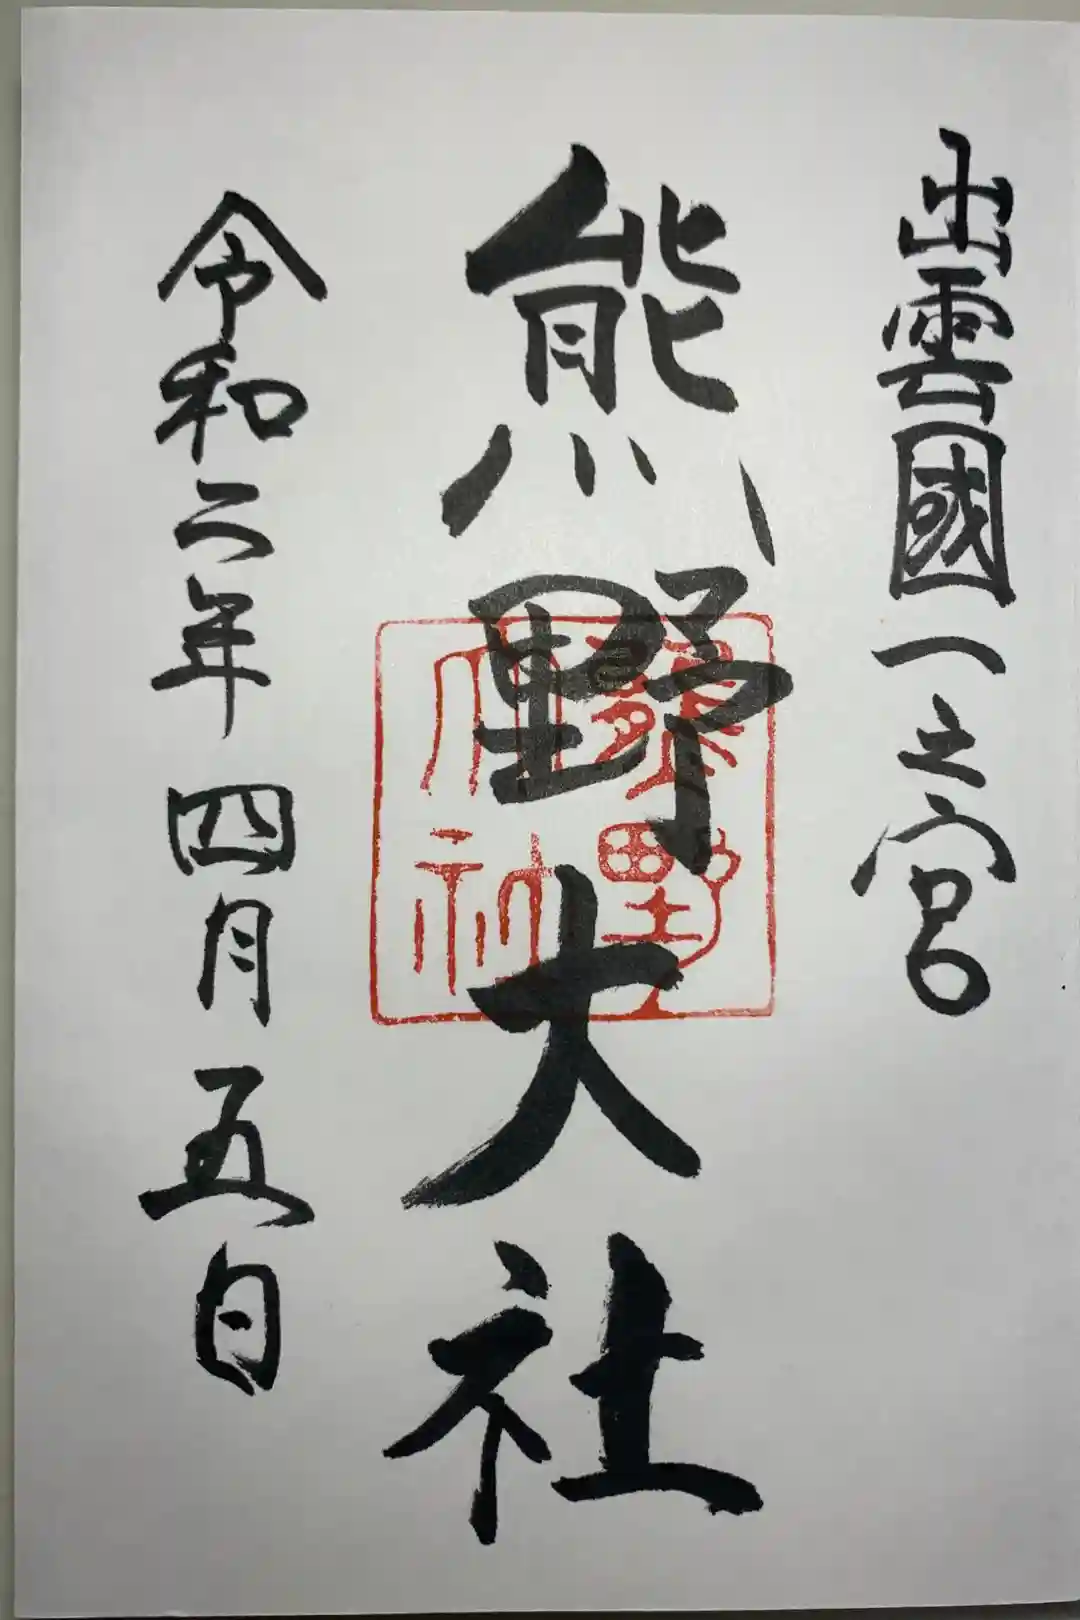 出雲國一之宮
熊野大社
熊野大社
令和二年四月五日